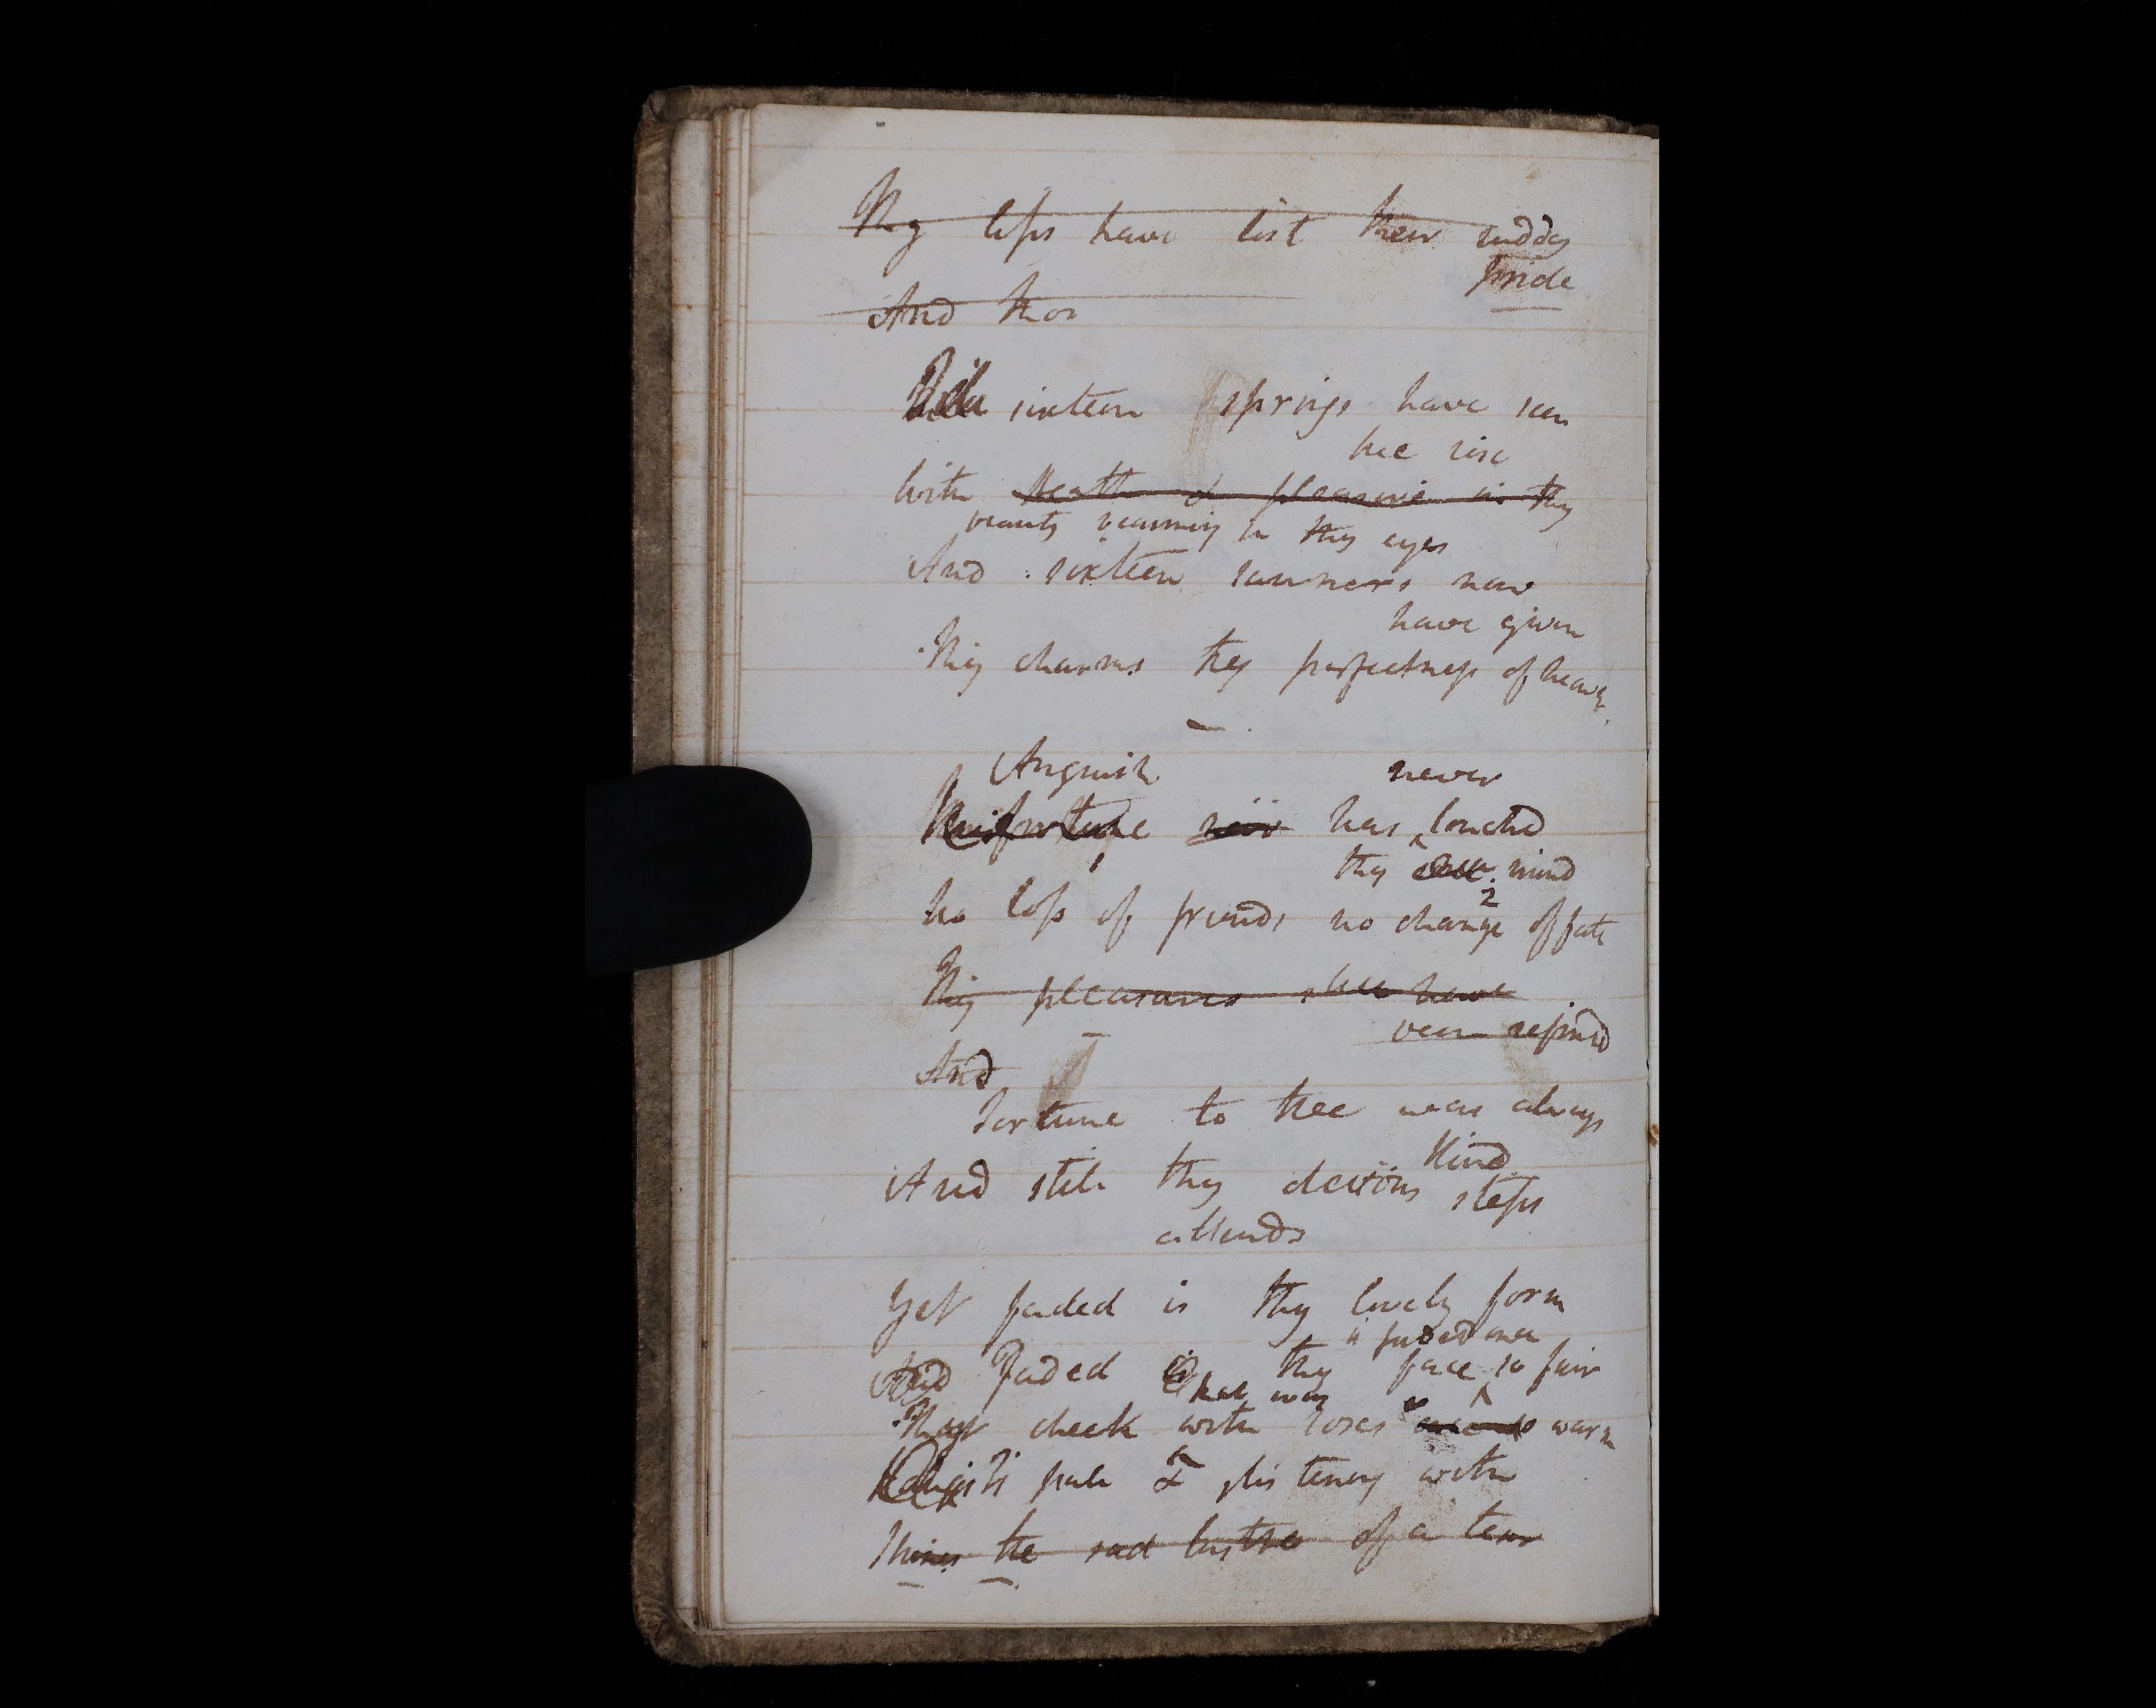 Thy lips have lost their ruddy
pride
And thou
sixteen springs have seen
thee rise
With health & pleasure in thy
beauty beaming in thy eyes
And sixteen summers now
have given
Thy charms they perfectness of heaven
Anguish never
Misfortune neer has touchd
thy mind
No loss of friends no change of fate
Thy pleasures have
been refined
And
Fortune to thee was always
kind
And still thy devious steps
attends
Yet faded is thy lovely form
is faded once
And Faded is thy face so fair
that was
That cheek with roses once so warm
is pale & glistening with
Shines the sad lustre of a tear